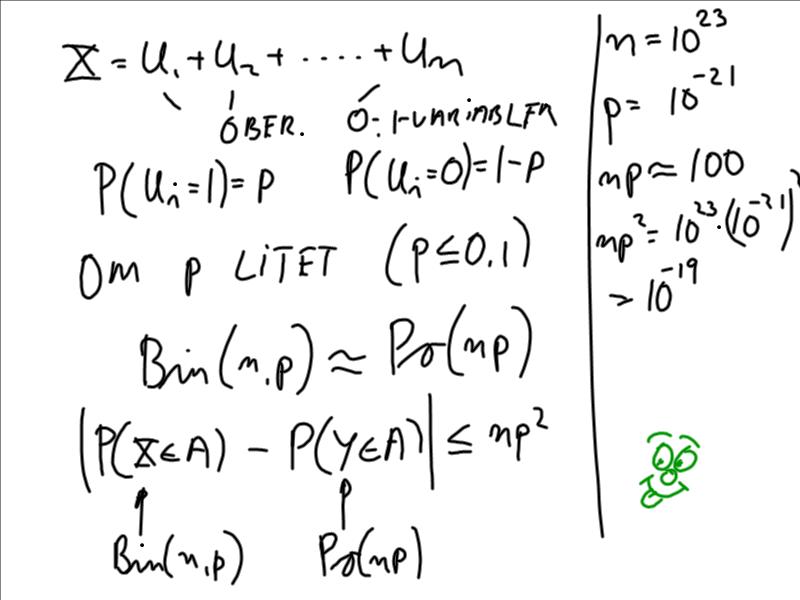 X = U₁ + U₂ + ..... + Uₙ
OBER. 0-1-VARIABLER
P(Uᵢ=1)=p P(Uᵢ=0)=1-p
OM p LITET (p≤0.1)
Bin(n,p) ≈ Po(np)
|P(X∈A) - P(Y∈A)| ≤ np²
Bin(n,p) Po(np)
n = 10²³
p = 10⁻²¹
np ≈ 100
np² = 10²³·(10⁻²¹)²
= 10⁻¹⁹